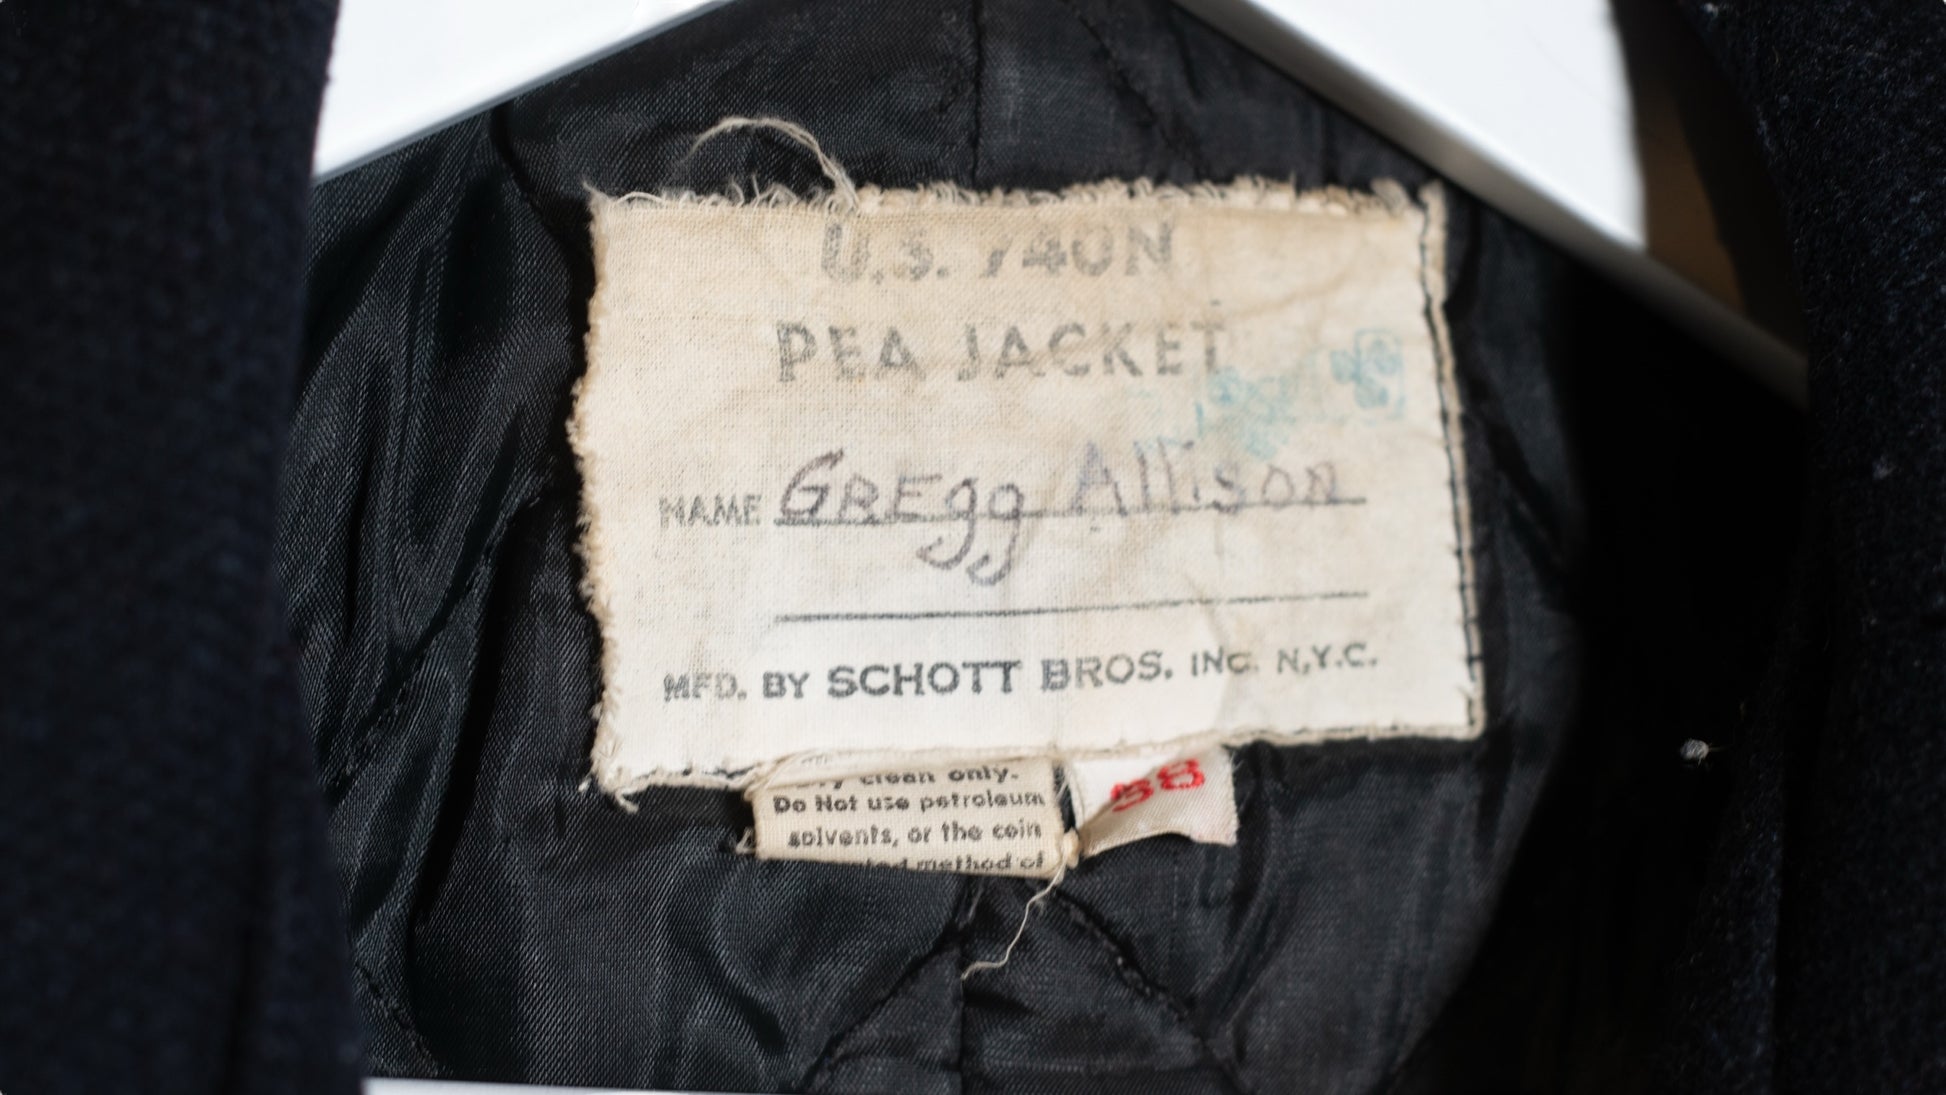 U.S. 740N
PEA JACKET
NAME GREgg Allison
MFD. BY SCHOTT BROS. INC. N.Y.C.
clean only.
Do Not use petroleum
solvents, or the coin
method of